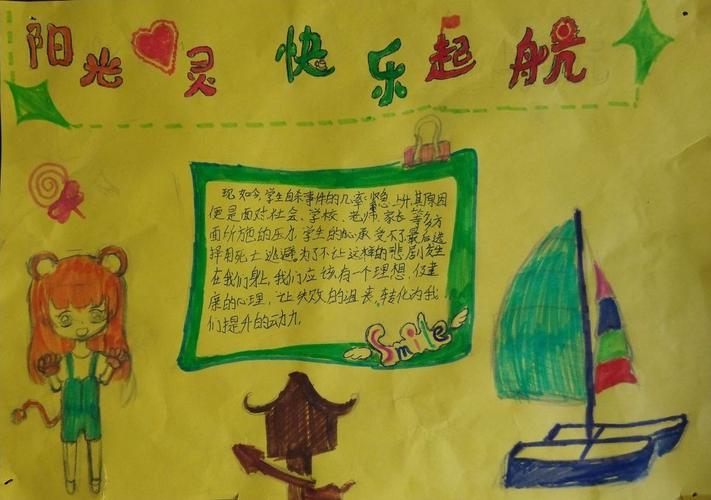 阳光❤灵 快乐起航
现如今,学生自杀事件的几率急上升,其原因
便是面对社会、学校、老师、家长等多方
面所施的压力,学生的心承受不了最后选
择用死亡逃避为了不让这样的悲剧发生
在我们身上,我们应该有一个理想、健
康的心理,让失败的沮丧,转化为我
们提升的动力。
Smile